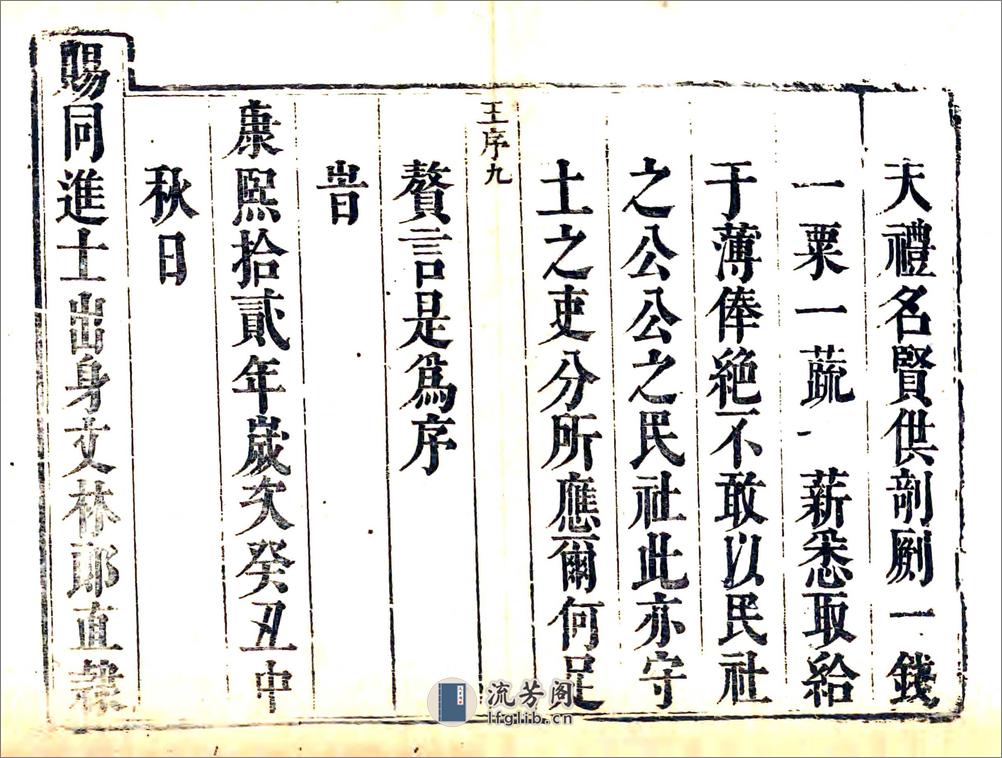 大禮名賢供剞劂一錢
一粟一蔬一薪悉取給
于薄俸絶不敢以民社
之公公之民社此亦守
土之吏分所應爾何足
王序九
贅言是爲序
旹
康熙拾貳年嵗次癸丑中
秋日
賜同進士出身文林郎直隸
流芳阁
lfglib.cn